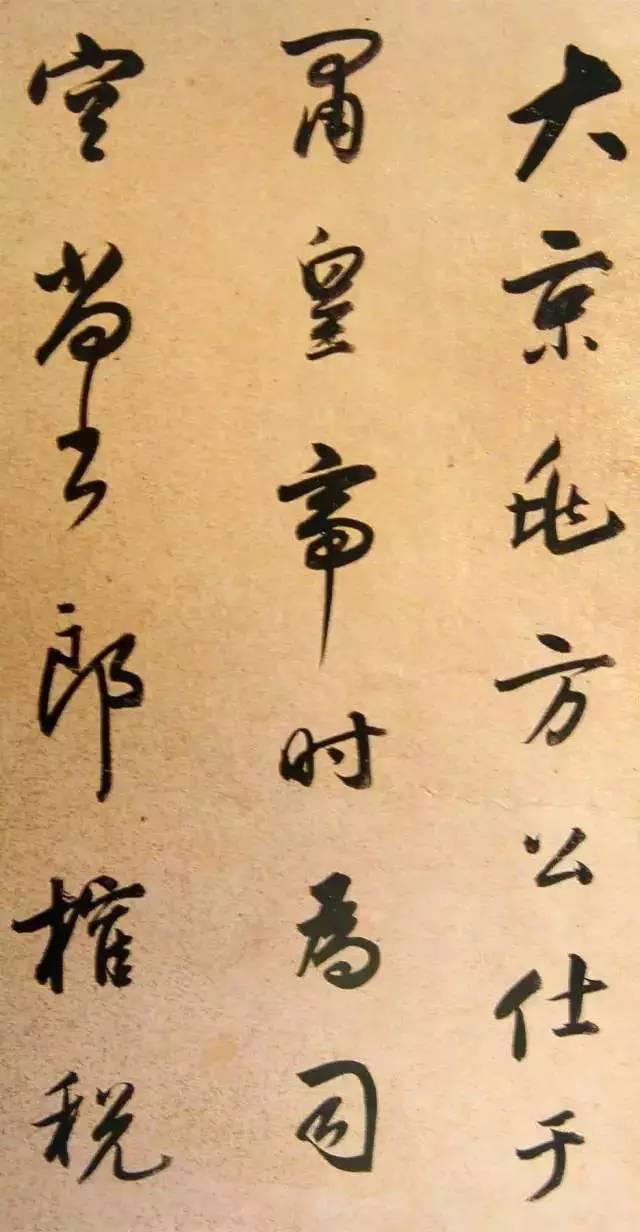 大京兆方公仕于
肃皇帝时为司
空尚书郎榷税